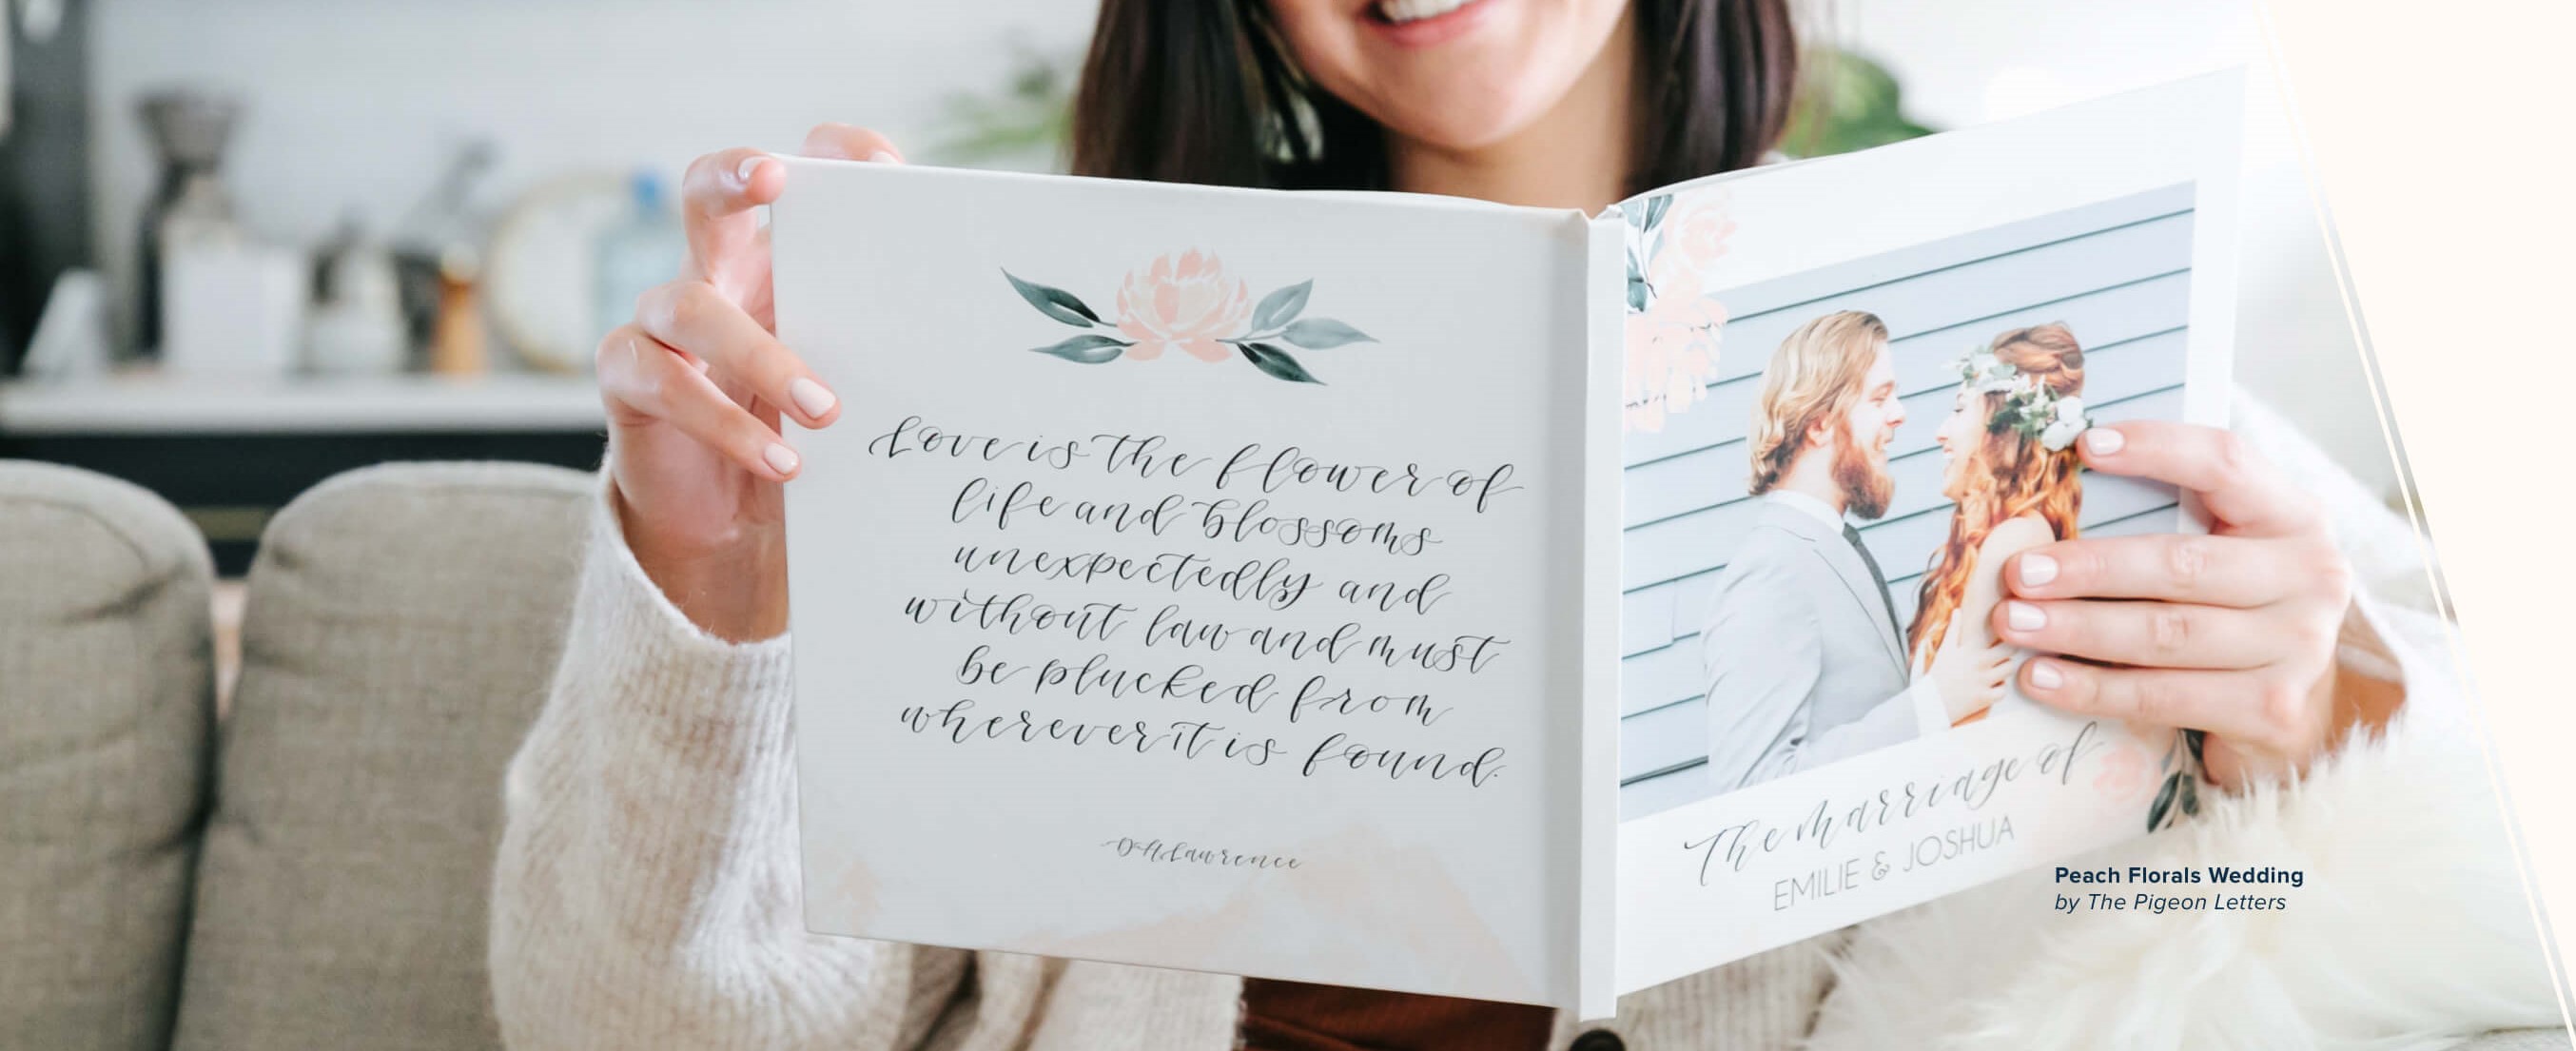 Love is the flower of
life and blossoms
unexpectedly and
without law and must
be plucked from
wherever it is found.
DH Lawrence
The marriage of
EMILIE & JOSHUA
Peach Florals Wedding
by The Pigeon Letters